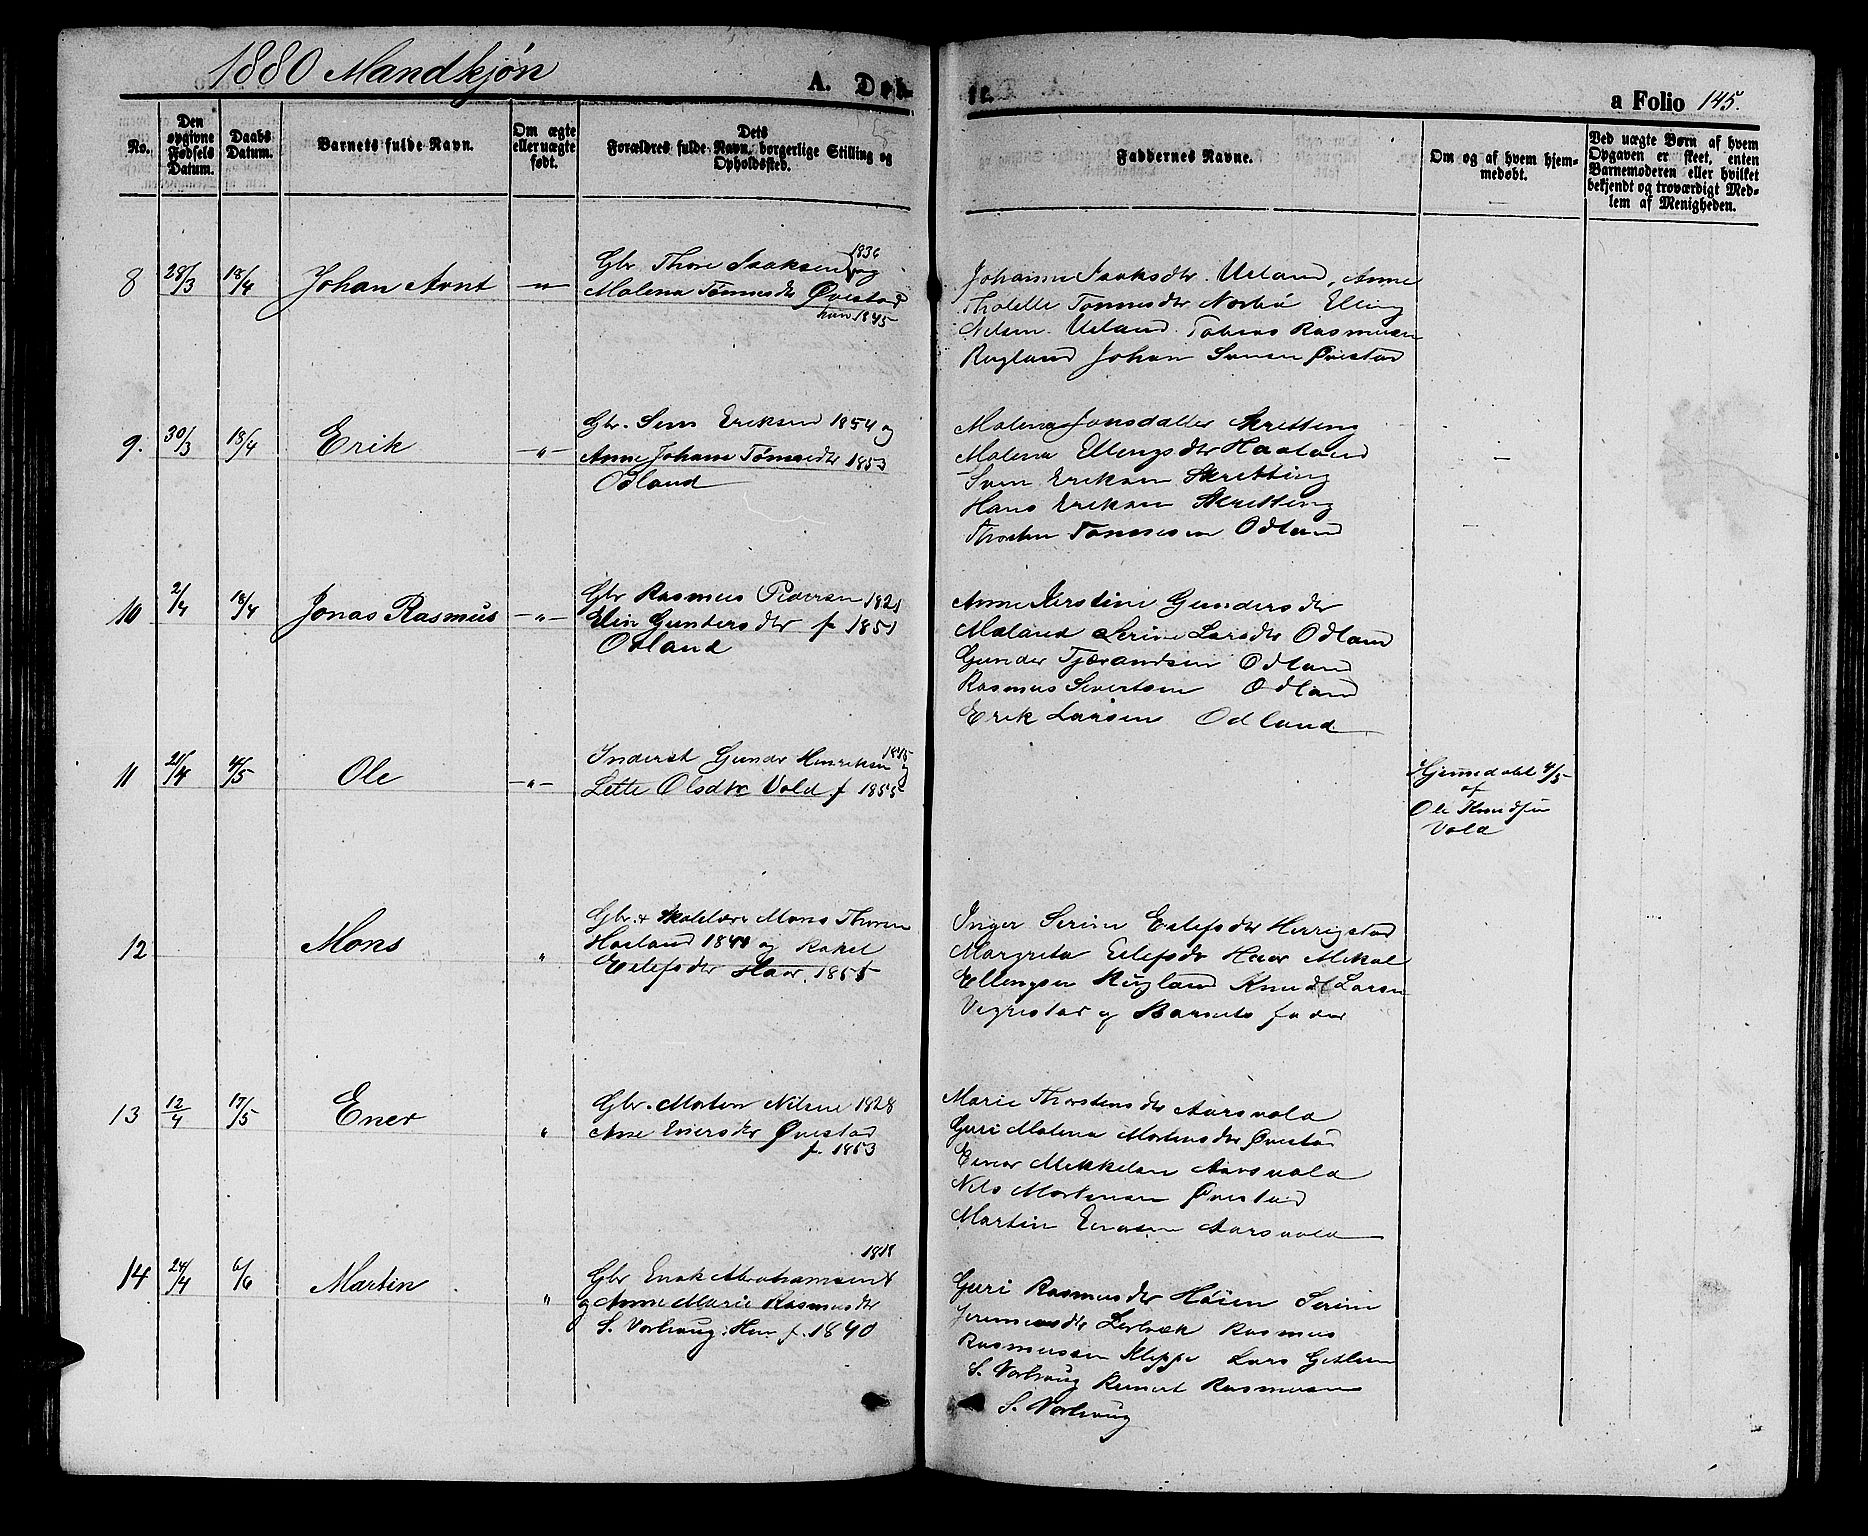 1880 Mandkjøn
A. Døbte.
a Folio 145.
No.
Den opgivne Fødsels Datum.
Daabs Datum.
Barnets fulde Navn.
Om ægte eller uægte født.
Dets Forældres fulde Navn, borgerlige Stilling og Opholdssted.
Faddernes Navne.
Om og af hvem hjemmedøbt.
Ved uægte Børn af hvem Opgaven er skeet, enten Barnemoderen eller hvilket bekjendt og troværdigt Medlem af Menigheden.
8 28/3 18/4 Johan Arnt -"-
Gbr. Thore Isaksen 1836 og
Malena Tønnesdtr Øvestad
hun 1845
Johanne Isaksdtr. Ueland, Anne
Tholette Tønnesdtr Norbø Elling
Nilsen Ueland Tobias Rasmusen
Rugland Johan Svensen Øvestad
9. 30/3 18/4 Erik -"-
Gbr. Sem Eriksen 1854 og
Anne Johane Tønnesdtr 1853
Odland
Malena Jonsdatter Skretting
Malena Ellengsdtr Haaland
Sven Eriksen Skretting
Hans Eriksen Skretting
Thorsten Tønnesen Odland
10 2/4 18/4 Jonas Rasmus -"-
Gbr Rasmus Pedersen 1821
Elin Gundersdtr f 1851
Odland
Anne Kerstine Gundersdtr
Maland Serine Larsdtr Odland
Gunder Tjærandsen Odland
Rasmus Sivertsen Odland
Erik Larsen Odland
11 21/4 4/5 Ole -"-
Inderst Gunder Henriksen 1845 og
Lette Olsdtr Vold f 1855
Hjemmedøbt 4/5
af
Ole Knudsen
Vold
12 Mons "
Gbr. & Skolelærer Mons Thorsen
Haaland 1841 og Rakel
Eilefsdtr Haar, 1855
Inger Serine Eilefsdtr Herrigstad
Margreta Eilefsdtr Haar Mikal
Ellengsen Rugland Knudt Larsen
Vigrestad og Barnets fader
13 12/4 17/5 Ener "
Gbr. Morten Nilsen 1828
Ane Enersdtr Øvestad
f. 1853
Marie Thorstensdtr Aarsvold
Guri Malena Mortensdtr Øvestad
Einar Mikkelsen Aarsvold
Nils Mortensen Øvestad
Martin Enersen Aarsvold
14 24/4 6/6 Martin "
1818
Gbr Enok Abrahamsen
og Anne Marie Rasmusdtr
S. Varhaug: Hun f. 1840
Guri Rasmusdtr Høien Serine
Jeremiasdtr Lerbrek Rasmus
Rasmussen Kleppe Lars
S. Varhaug Reinert Rasmusen
S. Varhaug